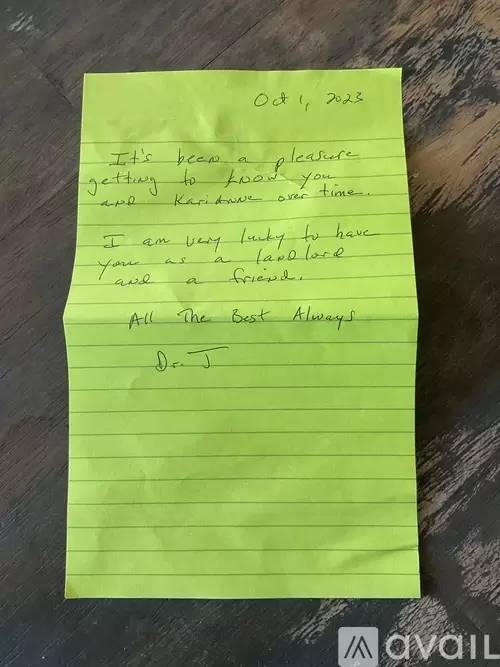 Oct 1, 2023
It's been a pleasure
getting to know you
and Karianne over time.
I am very lucky to have
you as a landlord
and a friend.
All The Best Always
Dr. J
avail